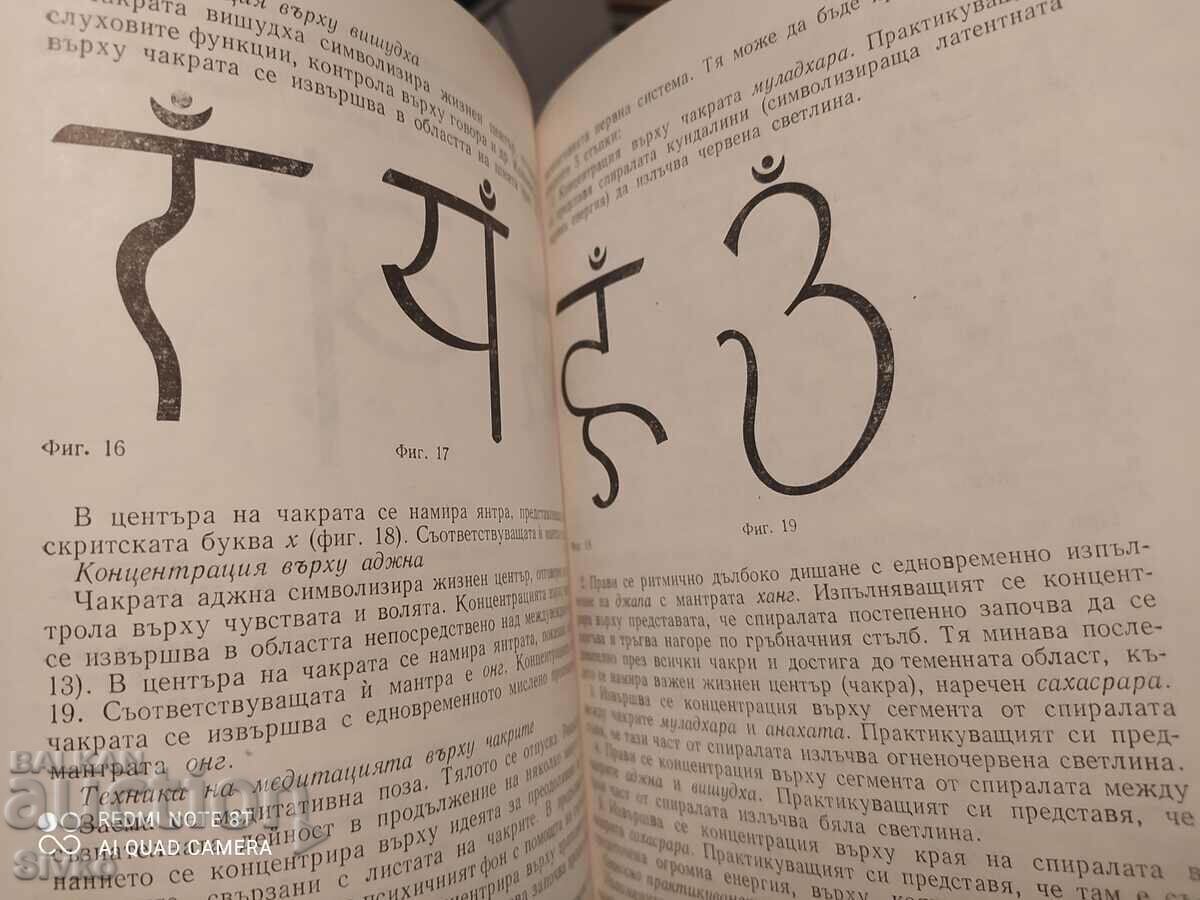 върху вишудха
чакрата вишудха символизира жизнен център,
слуховите функции, контрола върху говора и др.
върху чакрата се извършва в областта на шията
रँ
यँ
Фиг. 16
Фиг. 17
В центъра на чакрата се намира янтра,
скритската буква х (фиг. 18). Съответствуващата ѝ
Концентрация върху аджна
Чакрата аджна символизира жизнен център,
трола върху чувствата и волята. Концентрацията
се извършва в областта непосредствено над
13). В центъра на чакрата се намира янтрата,
19. Съответствуващата ѝ мантра е онг.
чакрата се извършва с едновременното мислено
мантрата онг.
Техника на медитацията върху чакрите
Заема се медитативна поза. Тялото се отпуска.
съзнателната дейност в продължение на няколко
нанието се концентрира върху идеята за
свързани с листата на чакрите.
психичният фон с помощта на
нервна система. Тя може да бъде
Концентрация върху чакрата муладхара. Практикуващ
спиралата кундалини (символизираща латентната
енергия) да излъчва червена светлина.
हँ
Фиг. 19
2. Прави се ритмично дълбоко дишане с едновременно изпъл-
на джапа с мантрата ханг. Изпълняващият се концент-
върху представата, че спиралата постепенно започва да се
и тръгва нагоре по гръбначния стълб. Тя минава после-
през всички чакри и достига до теменната област, къ-
се намира важен жизнен център (чакра), наречен сахасрара.
3. Извършва се концентрация върху сегмента от спиралата
между чакрите муладхара и анахата. Практикуващият си пред-
че тази част от спиралата излъчва огненочервена светлина.
4. Прави се концентрация върху сегмента от спиралата между
аджна и вишудха. Практикуващият си представя, че
част от спиралата излъчва бяла светлина.
5. Извършва се концентрация върху края на спиралата в
сахасрара. Практикуващият си представя, че там е
огромна енергия, върху
BALKAN
auction
REDMI NOTE 8T
AI QUAD CAMERA